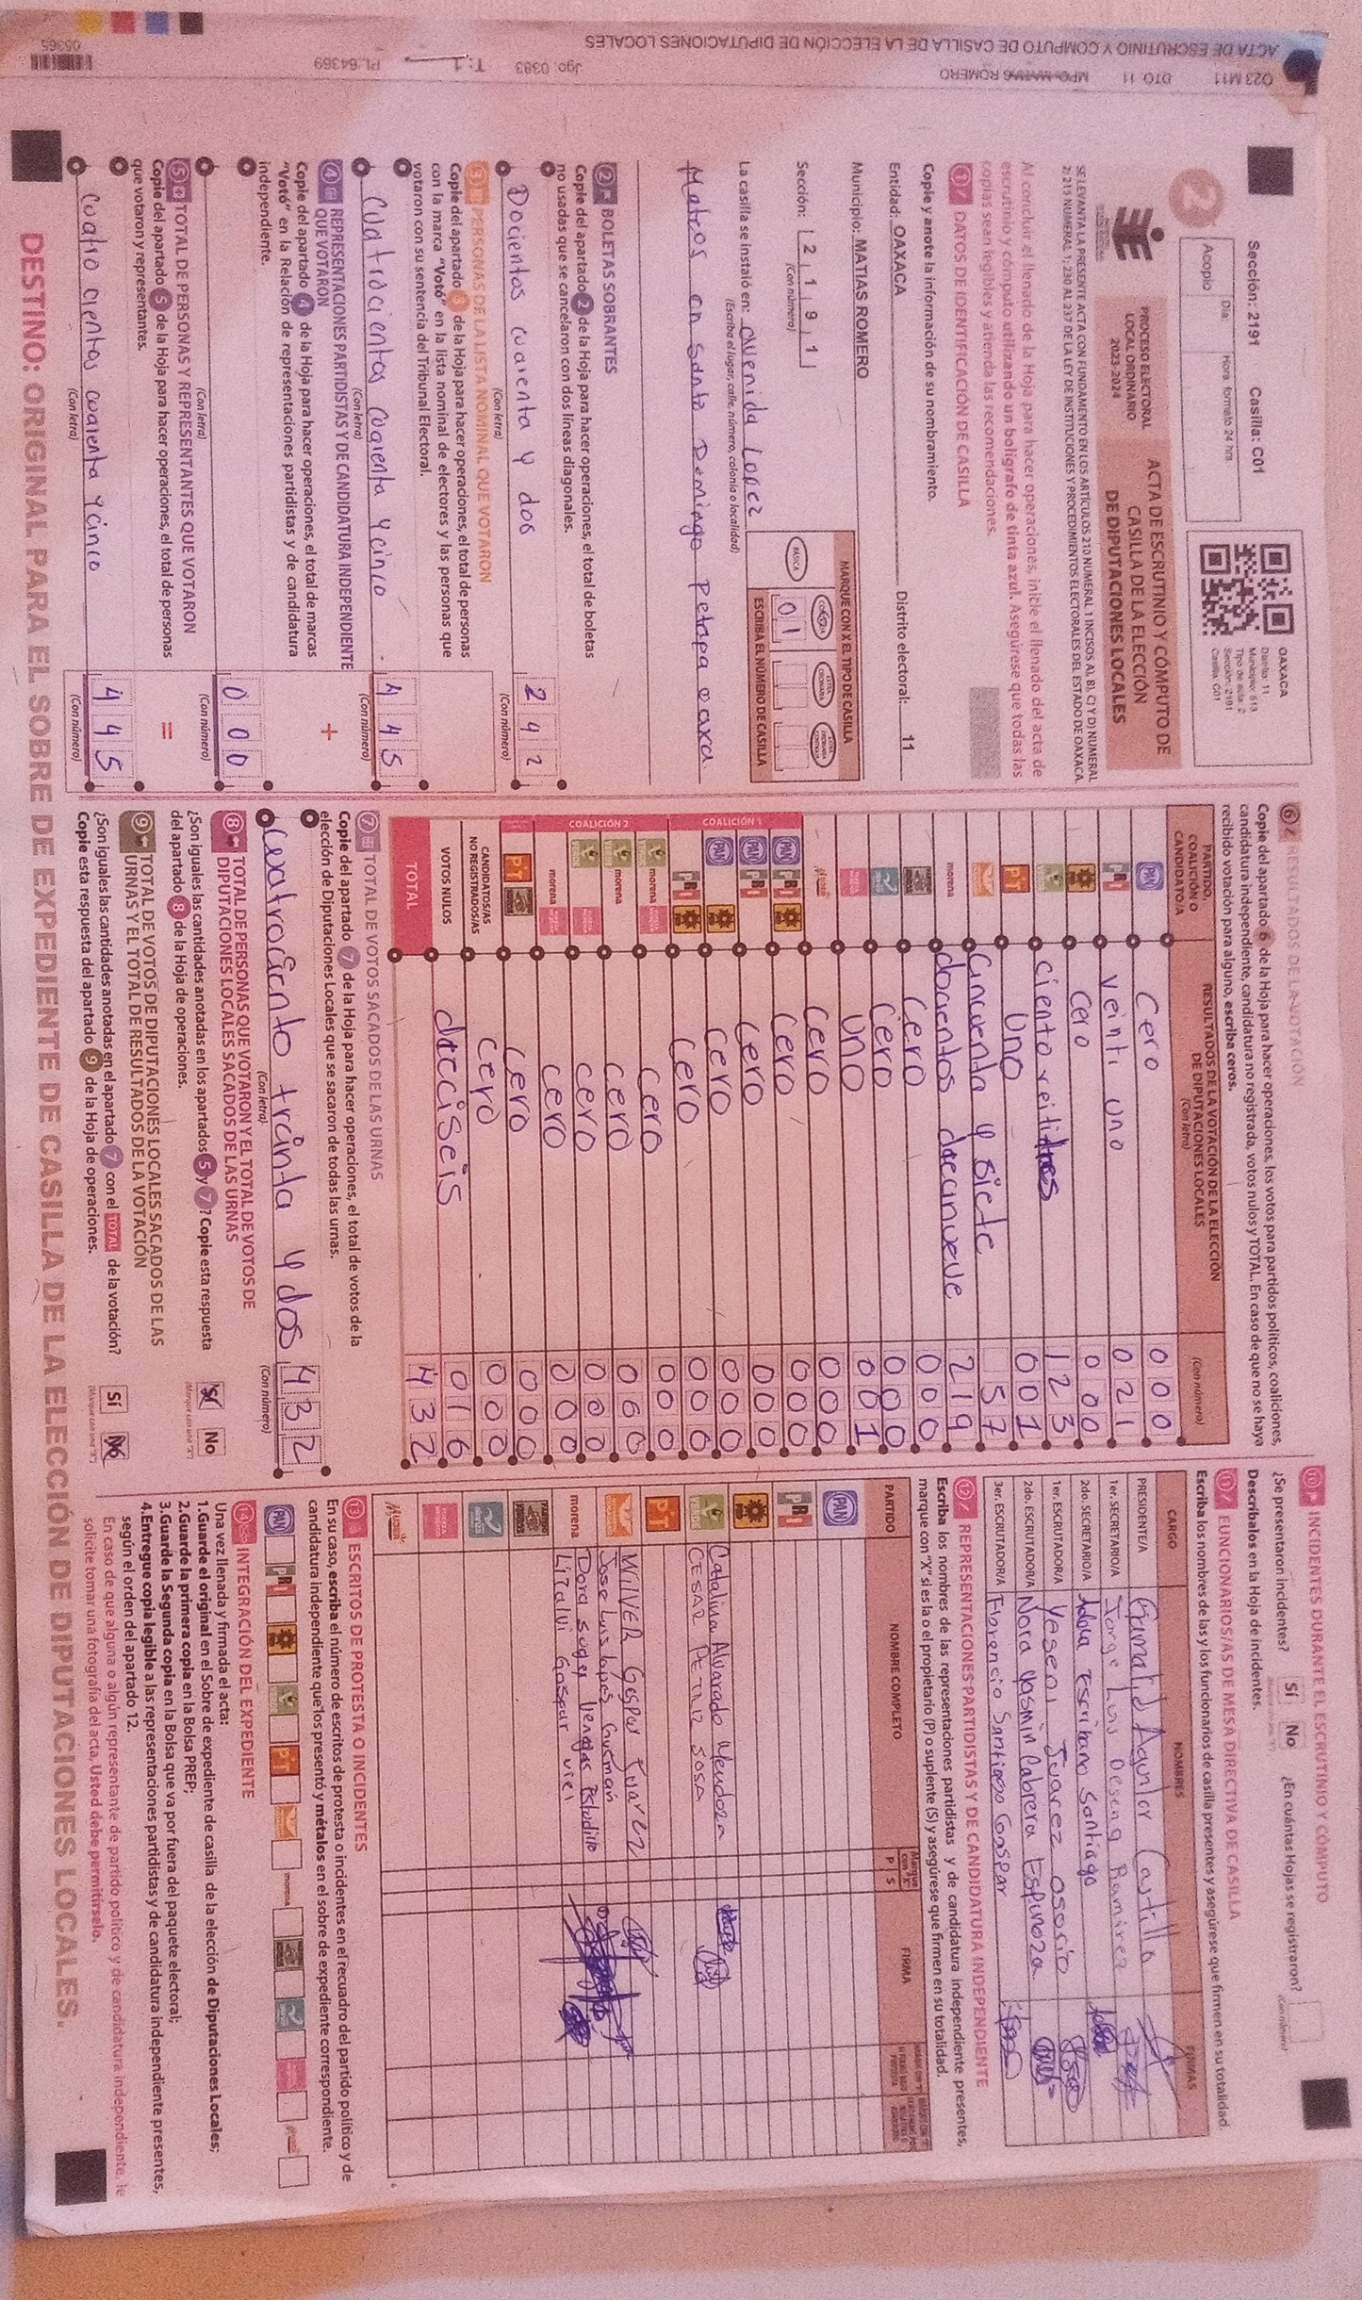 ACTA DE ESCRUTINIO Y CÓMPUTO DE CASILLA DE LA ELECCIÓN DE DIPUTACIONES LOCALES
023 M11 DTO. 11 MPO. MATIAS ROMERO
Jgo: 0383 T:1 PL:64369
05365
Sección: 2191 Casilla: C01
Día: Hora: formato 24 hrs
Acopio
2
OAXACA
Distrito: 11
Municipio: 513
Tipo de acta: 2
Sección: 2191
Casilla: C01
PROCESO ELECTORAL
LOCAL ORDINARIO
2023-2024
ACTA DE ESCRUTINIO Y CÓMPUTO DE
CASILLA DE LA ELECCIÓN
DE DIPUTACIONES LOCALES
SE LEVANTA LA PRESENTE ACTA CON FUNDAMENTO EN LOS ARTÍCULOS 210 NUMERAL 1 INCISOS A), B), C) Y D) NUMERAL
2; 215 NUMERAL 1; 230 AL 237 DE LA LEY DE INSTITUCIONES Y PROCEDIMIENTOS ELECTORALES DEL ESTADO DE OAXACA.
Al concluir el llenado de la Hoja para hacer operaciones, inicie el llenado del acta de
escrutinio y cómputo utilizando un bolígrafo de tinta azul. Asegúrese que todas las
copias sean legibles y atienda las recomendaciones.
1 DATOS DE IDENTIFICACIÓN DE CASILLA
Copie y anote la información de su nombramiento.
Entidad: OAXACA Distrito electoral: 11
Municipio: MATIAS ROMERO
Sección: 2 1 9 1
(Con número)
MARQUE CON X EL TIPO DE CASILLA
BÁSICA
01
ESCRIBA EL NÚMERO DE CASILLA
La casilla se instaló en: Avenida Lopez
(Escriba el lugar, calle, número, colonia o localidad)
Matros en Santo Domingo Petapa oaxaca
2 BOLETAS SOBRANTES
Copie del apartado 2 de la Hoja para hacer operaciones, el total de boletas
no usadas que se cancelaron con dos líneas diagonales.
Docientos cuarenta y dos 242
(Con letra) (Con número)
3 PERSONAS DE LA LISTA NOMINAL QUE VOTARON
Copie del apartado 3 de la Hoja para hacer operaciones, el total de personas
con la marca "Votó" en la lista nominal de electores y las personas que
votaron con su sentencia del Tribunal Electoral.
Cuatrocientos cuarenta y cinco 445
(Con letra) (Con número)
4 REPRESENTACIONES PARTIDISTAS Y DE CANDIDATURA INDEPENDIENTE
QUE VOTARON
Copie del apartado 4 de la Hoja para hacer operaciones, el total de marcas
"Votó" en la Relación de representaciones partidistas y de candidatura
independiente.
+
000
(Con letra) (Con número)
5 TOTAL DE PERSONAS Y REPRESENTANTES QUE VOTARON
Copie del apartado 5 de la Hoja para hacer operaciones, el total de personas
que votaron y representantes.
=
Cuatro cientos cuarenta y cinco 445
(Con letra) (Con número)
6 RESULTADOS DE LA VOTACIÓN
Copie del apartado 6 de la Hoja para hacer operaciones, los votos para partidos políticos, coaliciones,
candidatura independiente, candidatura no registrada, votos nulos y TOTAL. En caso de que no se haya
recibido votación para alguno, escriba ceros.
PARTIDO, COALICIÓN O CANDIDATO/A
RESULTADOS DE LA VOTACIÓN DE LA ELECCIÓN
DE DIPUTACIONES LOCALES
(Con letra) (Con número)
PAN cero 000
PRI veinti uno 021
cero 000
ciento veinti tres 123
PT uno 001
Cincuenta y siete 57
morena docientos diecinueve 219
cero 000
cero 000
uno 001
cero 000
COALICIÓN 1
PAN PRI cero 000
PAN PRI cero 000
PAN cero 000
PRI cero 000
COALICIÓN 2
morena cero 000
morena cero 000
cero 000
morena cero 000
PT cero 000
CANDIDATOS/AS NO REGISTRADOS/AS cero 000
VOTOS NULOS dieciseis 016
TOTAL 432
7 TOTAL DE VOTOS SACADOS DE LAS URNAS
Copie del apartado 7 de la Hoja para hacer operaciones, el total de votos de la
elección de Diputaciones Locales que se sacaron de todas las urnas.
Cuatrociento trainta y dos 432
(Con letra) (Con número)
8 TOTAL DE PERSONAS QUE VOTARON Y EL TOTAL DE VOTOS DE
DIPUTACIONES LOCALES SACADOS DE LAS URNAS
¿Son iguales las cantidades anotadas en los apartados 5 y 7? Copie esta respuesta
del apartado 8 de la Hoja de operaciones.
Sí No
9 TOTAL DE VOTOS DE DIPUTACIONES LOCALES SACADOS DE LAS
URNAS Y EL TOTAL DE RESULTADOS DE LA VOTACIÓN
¿Son iguales las cantidades anotadas en el apartado 7 con el TOTAL de la votación?
Copie esta respuesta del apartado 9 de la Hoja de operaciones.
Sí No
10 INCIDENTES DURANTE EL ESCRUTINIO Y CÓMPUTO
¿Se presentaron incidentes? Sí No ¿En cuántas Hojas se registraron?
(Con número)
Descríbalos en la Hoja de incidentes.
11 FUNCIONARIOS/AS DE MESA DIRECTIVA DE CASILLA
Escriba los nombres de las y los funcionarios de casilla presentes y asegúrese que firmen en su totalidad.
CARGO NOMBRES FIRMAS
PRESIDENTE/A Grimald Aguilar Castillo
1er. SECRETARIO/A Jorge Luis Ramirez
2do. SECRETARIO/A Adela Escribano Santiago
1er. ESCRUTADOR/A Yeseni Juarez Osorio
2do. ESCRUTADOR/A Nora Yasmin Cabrera Espinoza
3er. ESCRUTADOR/A Florencio Santiago Gaspar
12 REPRESENTACIONES PARTIDISTAS Y DE CANDIDATURA INDEPENDIENTE
Escriba los nombres de las representaciones partidistas y de candidatura independiente presentes,
marque con "X" si es la o el propietario (P) o suplente (S) y asegúrese que firmen en su totalidad.
PARTIDO NOMBRE COMPLETO P S FIRMA
PAN
PRI
Catalina Alvarado Mendoza
CESAR SOSA
PT
WILVER Gaspar Juarez
Jose Luis Lopez Guzman
morena Dora
Litalvi Gaspar
13 ESCRITOS DE PROTESTA O INCIDENTES
En su caso, escriba el número de escritos de protesta o incidentes en el recuadro del partido político y de
candidatura independiente que los presentó y métalos en el sobre de expediente correspondiente.
PAN PRI PT morena
14 INTEGRACIÓN DEL EXPEDIENTE
Una vez llenada y firmada el acta:
1.Guarde el original en el Sobre de expediente de casilla de la elección de Diputaciones Locales;
2.Guarde la primera copia en la Bolsa PREP;
3.Guarde la Segunda copia en la Bolsa que va por fuera del paquete electoral;
4.Entregue copia legible a las representaciones partidistas y de candidatura independiente presentes,
según el orden del apartado 12.
En caso de que alguna o algún representante de partido político y de candidatura independiente, le
solicite tomar una fotografía del acta, Usted debe permitírselo.
DESTINO: ORIGINAL PARA EL SOBRE DE EXPEDIENTE DE CASILLA DE LA ELECCIÓN DE DIPUTACIONES LOCALES.